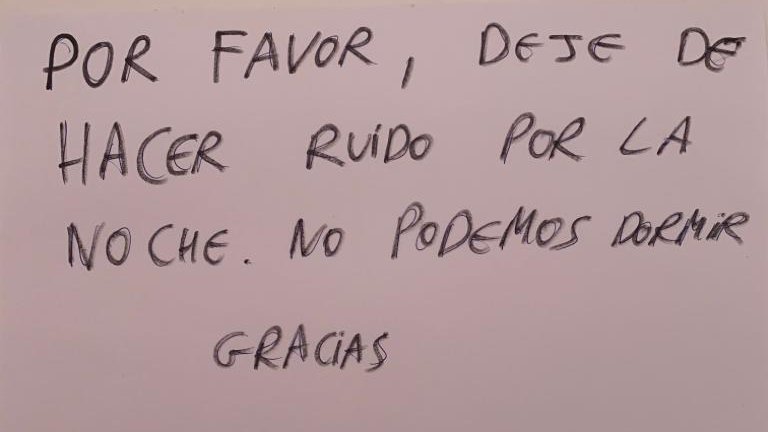 POR FAVOR, DEJE DE
HACER RUIDO POR LA
NOCHE. NO PODEMOS DORMIR
GRACIAS